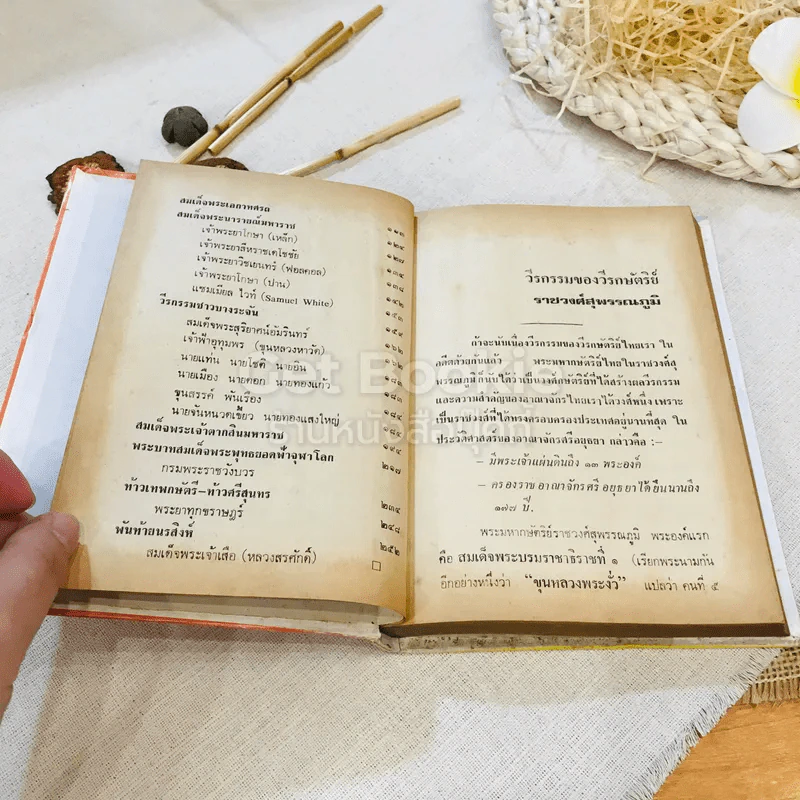 สมเด็จพระเอกาทศรถ ๑๑๓
สมเด็จพระนารายณ์มหาราช ๑๒๔
เจ้าพระยาโกษา (เหล็ก) ๑๒๗
เจ้าพระยาสีหราชเดโชชัย
เจ้าพระยาวิชเยนทร์ (ฟอลคอล)
เจ้าพระยาโกษา (ปาน)
แซมเมียล ไวท์ (Samuel White)
วีรกรรมชาวบางระจัน
สมเด็จพระสุริยาศน์อัมรินทร์
เจ้าฟ้าอุทุมพร (ขุนหลวงหาวัด)
นายแท่น นายโชติ นายอิน
นายเมือง นายดอก นายทองแก้ว
ขุนสรรค์ พันเรือง
นายจันหนวดเขี้ยว นายทองแสงใหญ่
สมเด็จพระเจ้าตากสินมหาราช
พระบาทสมเด็จพระพุทธยอดฟ้าจุฬาโลก ๑๙๔
กรมพระราชวังบวร ๒๑๗
ท้าวเทพกษัตรี-ท้าวศรีสุนทร
พระยาทุกขราษฎร์ ๒๓๔
พันท้ายนรสิงห์ ๒๔๘
สมเด็จพระเจ้าเสือ (หลวงสรศักดิ์) ๒๕๒
วีรกรรมของวีรกษัตริย์
ราชวงศ์สุพรรณภูมิ
ถ้าจะนับเนื่องวีรกรรมของวีรกษัตริย์ไทยเรา ใน
อดีตสมัยนั้นแล้ว พระมหากษัตริย์ไทยในราชวงศ์สุ
พรรณภูมิก็นับได้ว่าเป็นวงศ์กษัตริย์ที่ได้สร้างผลวีรกรรม
และความสำคัญของอาณาจักรไทยเราได้วงศ์หนึ่ง เพราะ
เป็นราชวงศ์ที่ได้ทรงครอบครองประเทศอยู่นานที่สุด ใน
ประวัติศาสตร์ของอาณาจักรศรีอยุธยา กล่าวคือ :-
- มีพระเจ้าแผ่นดินถึง ๑๓ พระองค์
- ครองราชอาณาจักรศรีอยุธยาได้ยืนนานถึง
๑๗๗ ปี.
พระมหากษัตริย์ราชวงศ์สุพรรณภูมิ พระองค์แรก
คือ สมเด็จพระบรมราชาธิราชที่ ๑ (เรียกพระนามกัน
อีกอย่างหนึ่งว่า "ขุนหลวงพระงั่ว" แปลว่า คนที่ ๕
Got Book
ร้านหนังสือ